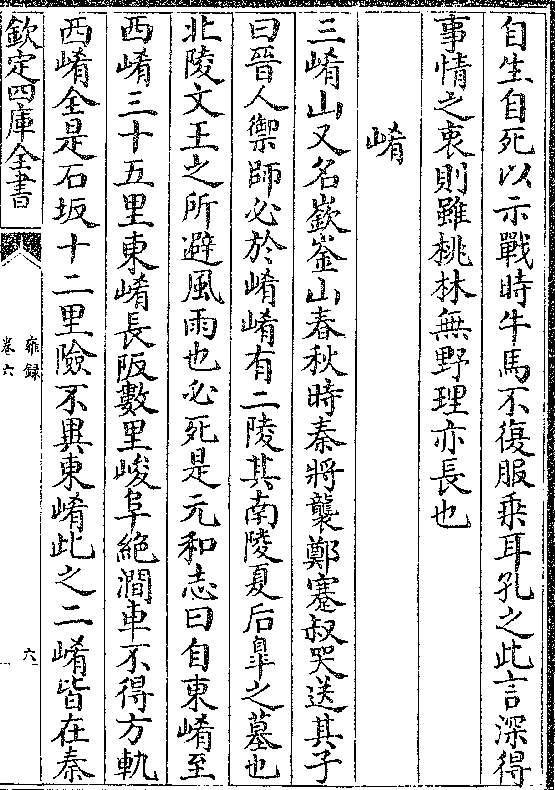 自生自死以示戰時牛馬不復服乗耳孔之此言深得
事情之衷則雖桃林無野理亦長也
崤
三崤山又名嶔崟山春秋時秦將襲鄭蹇叔哭送其子
曰晉人禦師必於崤崤有二陵其南陵夏后臯之墓也
北陵文王之所避風雨也必死是元和志曰自東崤至
西崤三十五里東崤長阪數里峻阜絶澗車不得方軌
西崤全是石坂十二里險不異東崤此之二崤皆在秦
欽定四庫全書
雍録
卷六
六